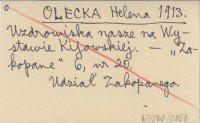 OLECKA Helena 1913.
Uzdrowiska nasze na Wy-
stawie Kijowskiej. — „Za-
kopane" 6, nr 20.
Udział Zakopanego